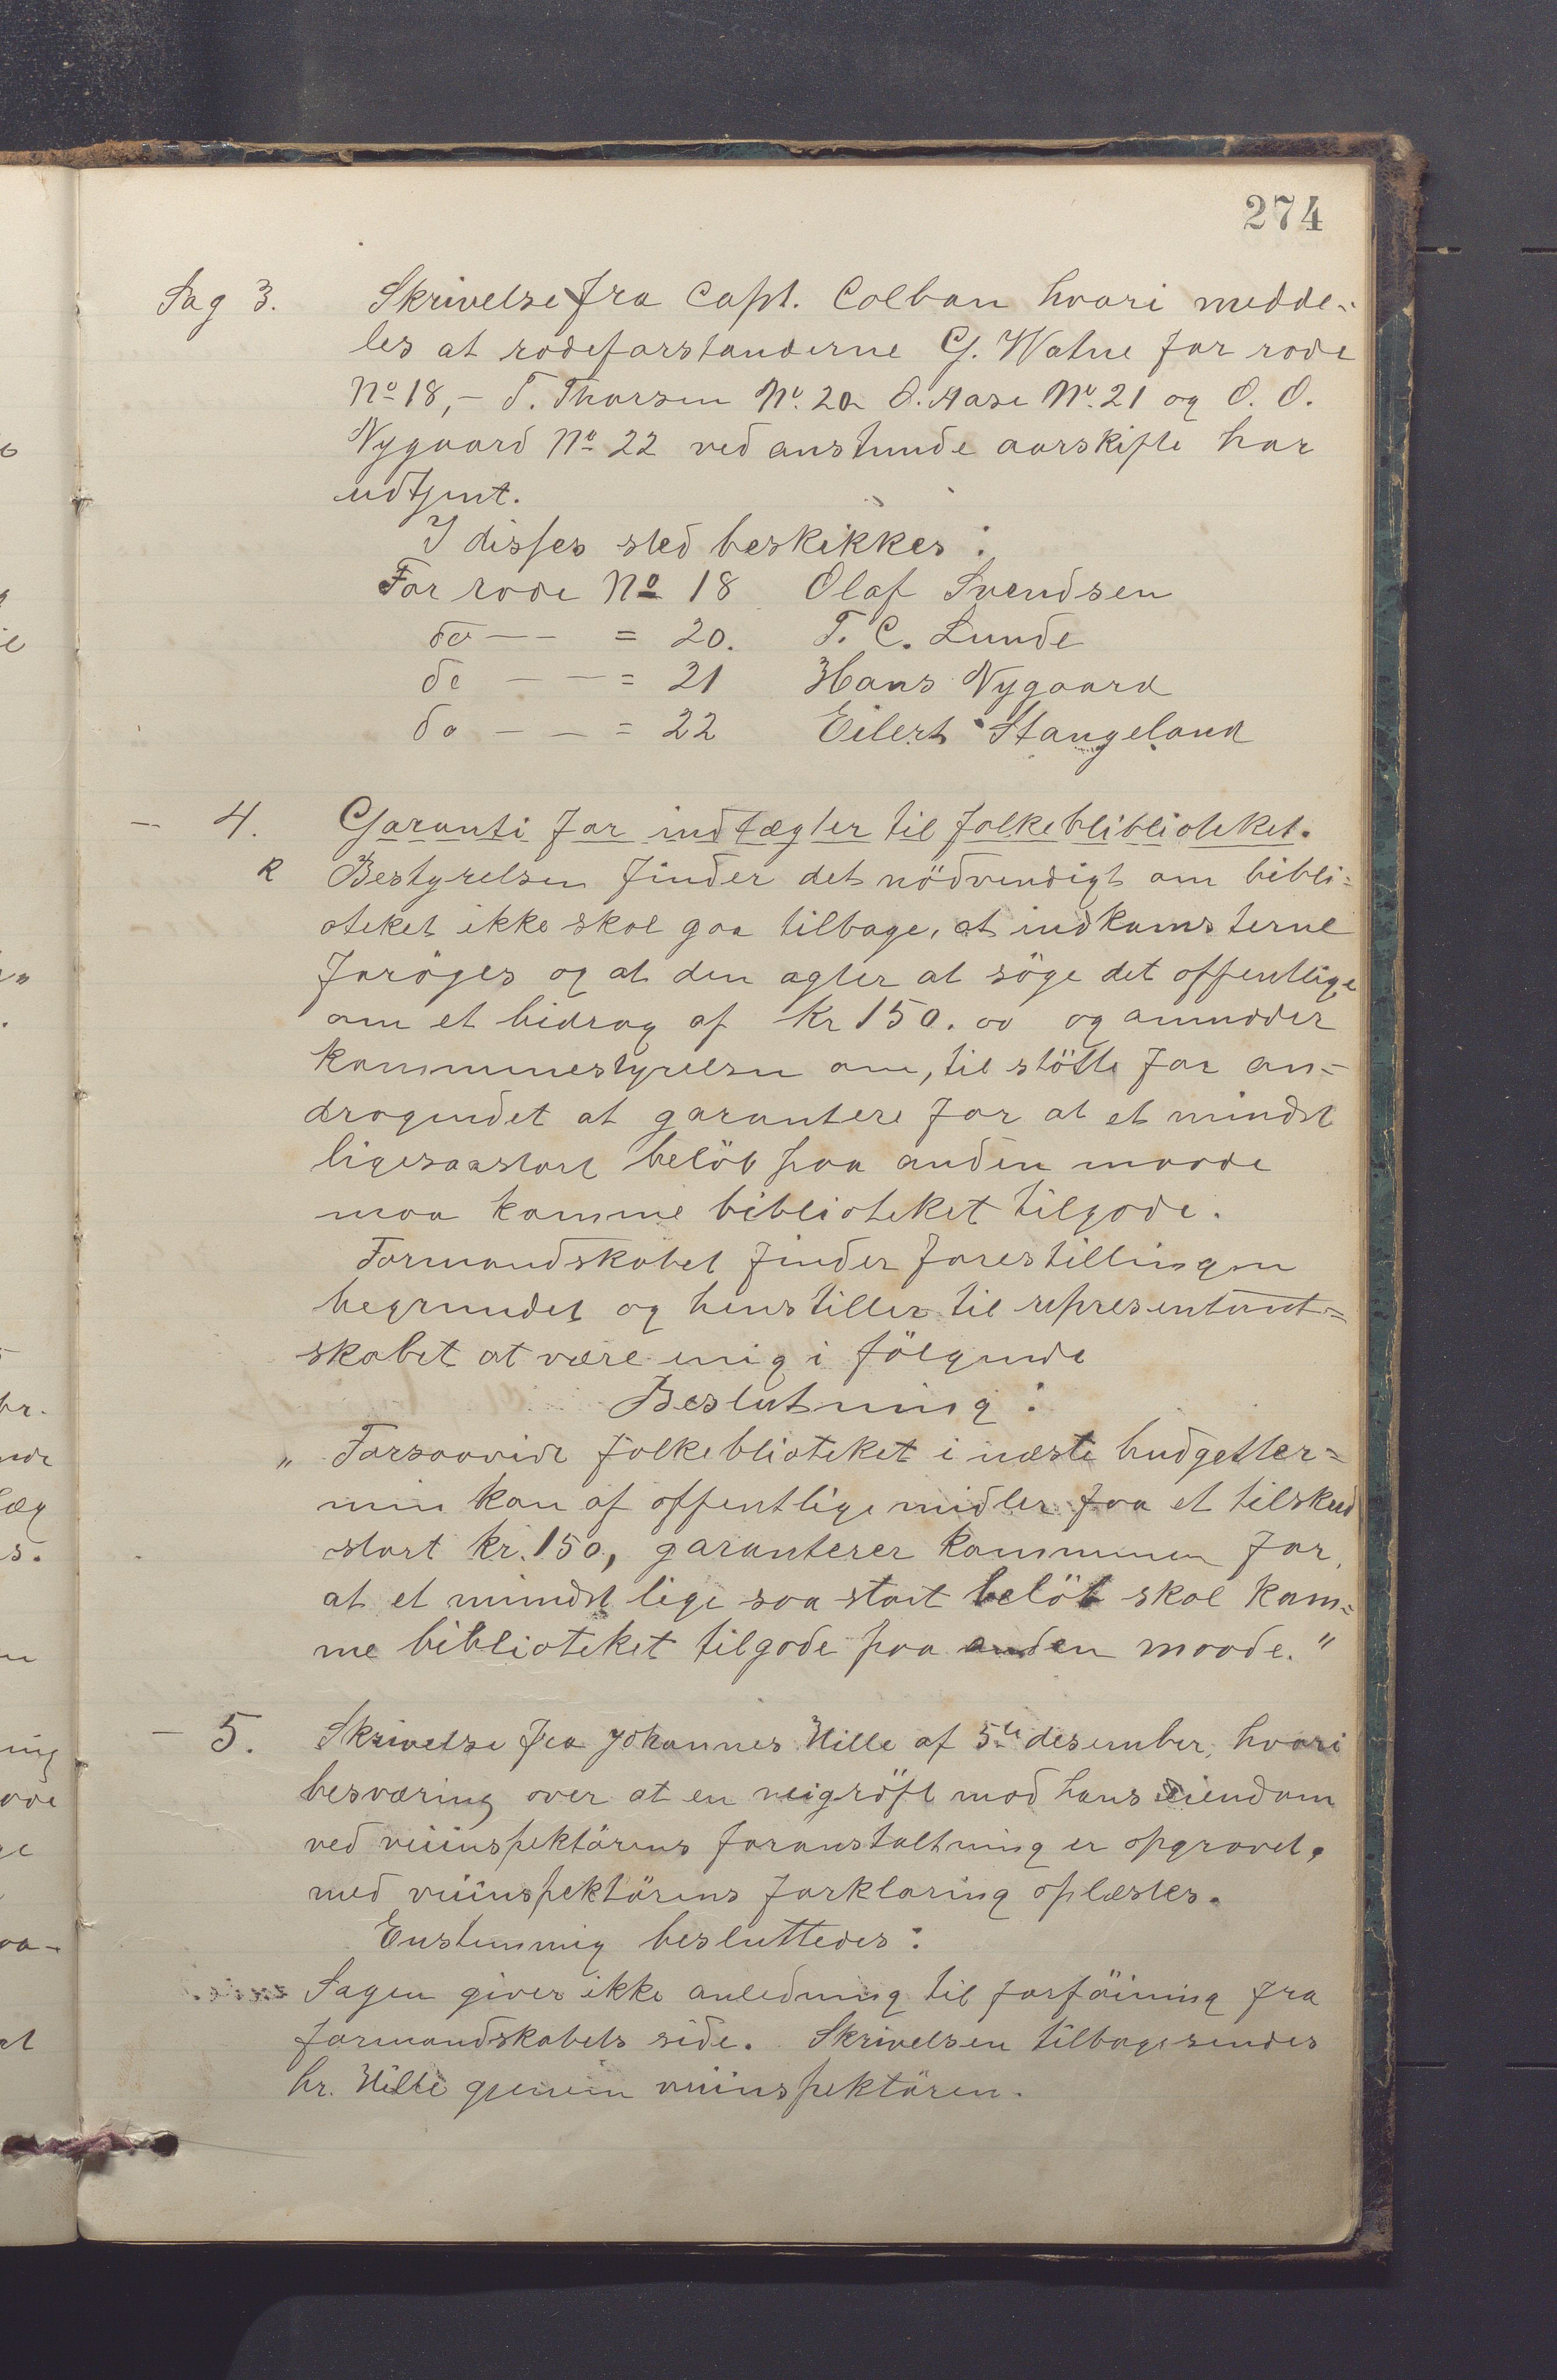 274
Sag 3. Skrivelse fra Capt. Colban hvori medde-
les at rodeforstanderne G. Watne for rode
No 18,- T. Thorsen No. 20 O. Aase No. 21 og O. O.
Nygaard No 22 ved anstunde aarskifte har
udtjent.
I disses sted beskikkes:
For rode No 18 Olaf Svendsen
do - - = 20. T. C. Lunde
do - - = 21 Hans Nygaard
do - - = 22 Eilert Stangeland
- 4. Garanti for indtægter til folkebliblioteket.
R Bestyrelsen finder det nödvendigt om bibli-
oteket ikke skal gaa tilbage, at indkomsterne
foröges og at den agter at söge det offentlige
om et bidrag af Kr 150.00 og anmoder
kommunestyrelsen om, til stötte for an-
dragendet at garantere for at et mindst
ligesaastort belöb paa anden maade
maa komme biblioteket tilgode.
Formandskabet finder forestillingen
begrundet og henstiller til representant-
skabet at være enig i fölgende
Beslutning:
„ Forsaavidt folkeblioteket i næste budgetter-
min kan af offentlige midler faa et tilskud
stort kr. 150, garanterer kommunen for,
at et mindst lige saa stort belöb skal kom-
me biblioteket tilgode paa anden maade."
- 5. Skrivelse fra Johannes Hille af 5te desember, hvori
besværing over at en veigröft mod hans eiendom
ved veiinspektörens foranstaltning er opgravet,
med veiinspektörens forklaring oplæstes.
Enstemmig besluttedes:
Sagen giver ikke anledning til forföining fra
formandskabets side. Skrivelsen tilbagesendes
hr. Hille gjenem veiinspektören.